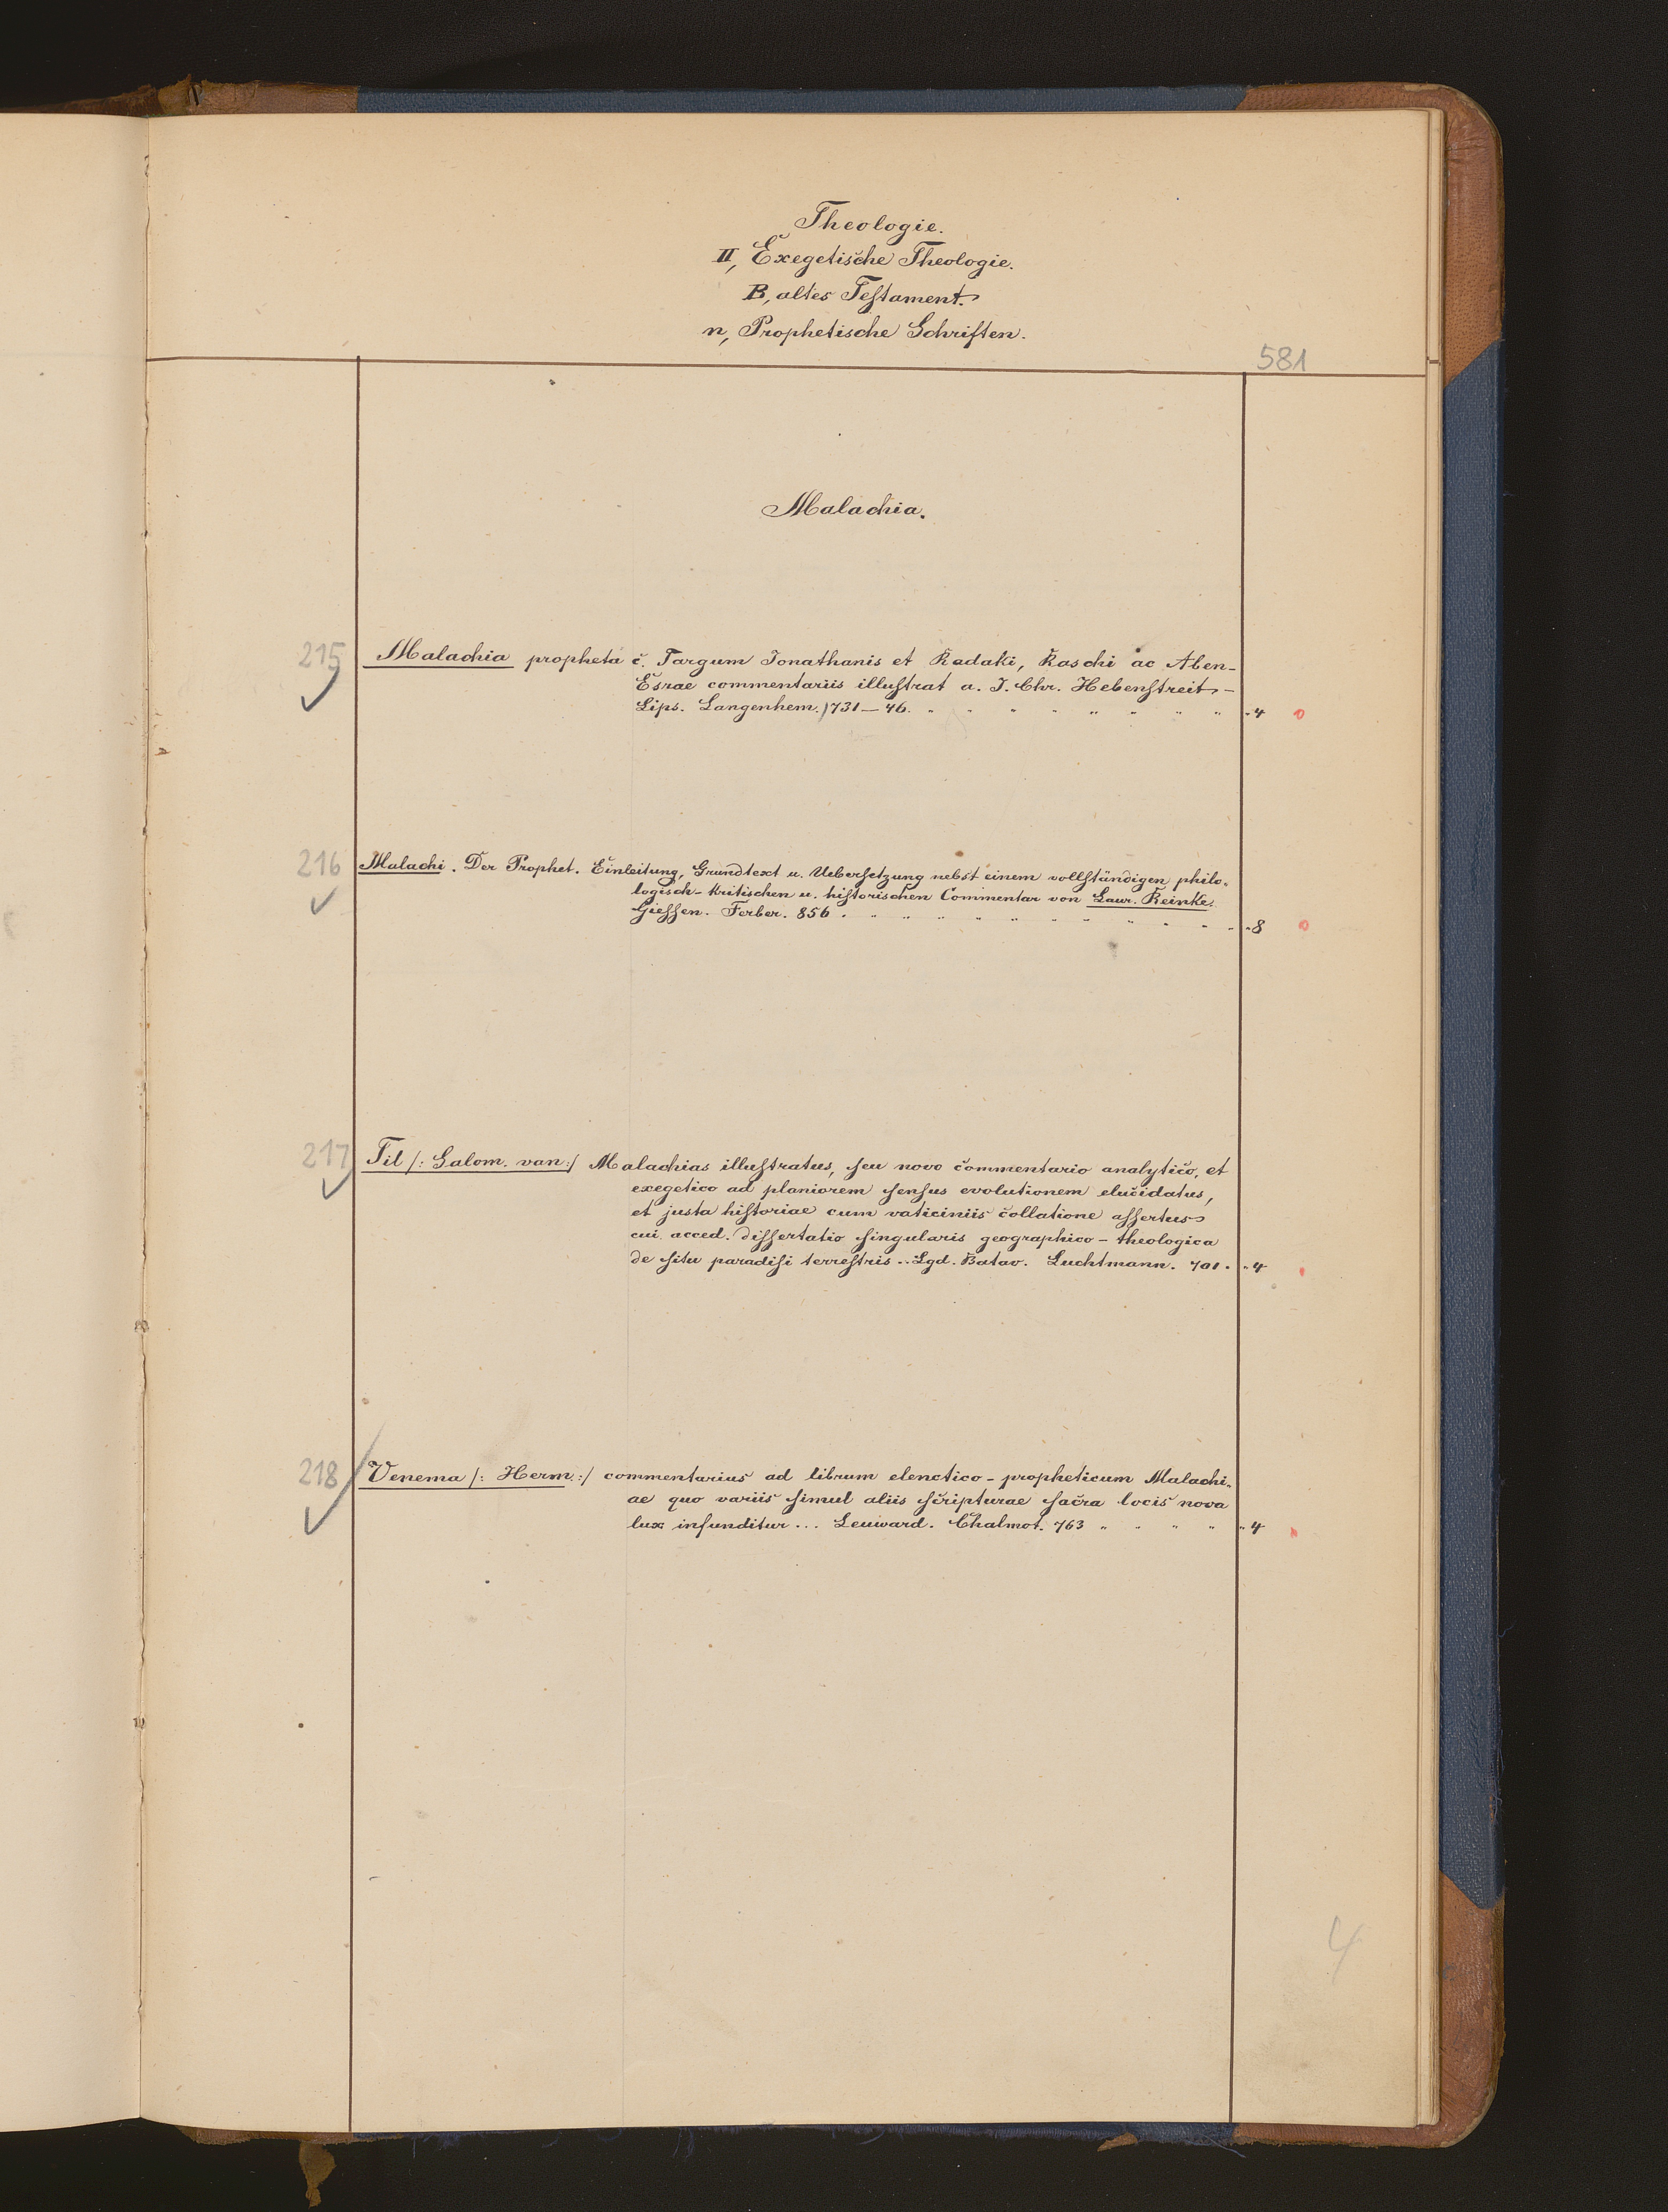 Theologie.
II, Exegetische Theologie.
B, altes Testament.
n, Prophetische Schriften.
581
Malachia.
215 Malachia propheta c. Targum Jonathanis et Radaki, Raschi ac Aben-
Esrae commentariis illustrat a. J. Chr. Hebenstreit -
Lips. Langenhem. 1731-46. " " " " " " " " "4 0
216 Malachi. Der Prophet. Einleitung, Grundtext u. Uebersetzung nebst einem vollständigen philo-
logisch-kritischen u. historischen Commentar von Laur. Reinke.
Giessen. Ferber. 856. " " " " " " " " " " "8 0
217 Til /: Salom. van :/ Malachias illustratus, seu novo commentario analytico, et
exegetico ad planiorem sensus evolutionem elucidatus,
et justa historiae cum vaticiniis collatione assertus
cui acced. dissertatio singularis geographico-theologica
de situ paradisi terrestris .. Lgd. Batav. Luchtmann. 701. "4
218 Venema /: Herm. :/ commentarius ad librum elenctico-propheticum Malachi-
ae quo variis simul aliis scripturae sacra locis nova
lux infunditur ... Leuward. Chalmot. 763 " " " " "4
4